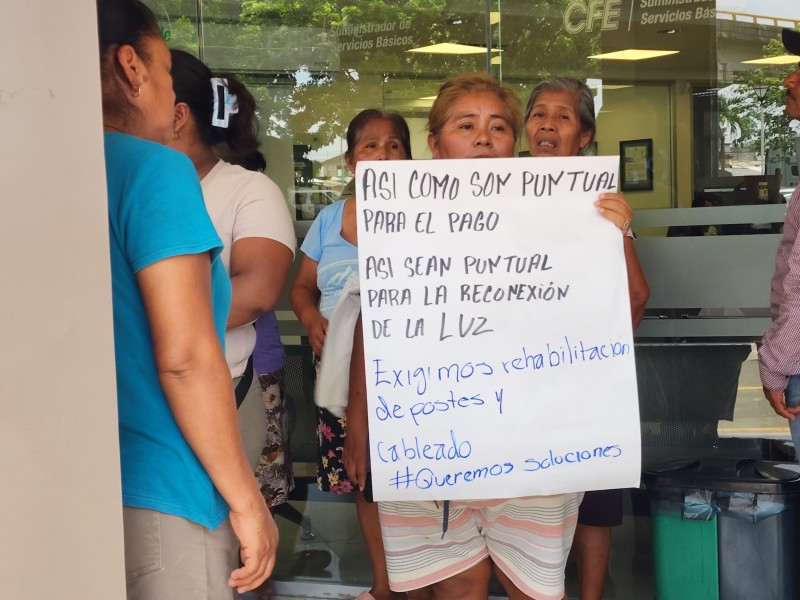 Suministrador de
Servicios Básicos
CFE
Suministrador
Servicios Básicos
ASI COMO SON PUNTUAL
PARA EL PAGO
ASI SEAN PUNTUAL
PARA LA RECONEXIÓN
DE LA LUZ
Exigimos rehabilitación
de postes y
cableado
#Queremos soluciones